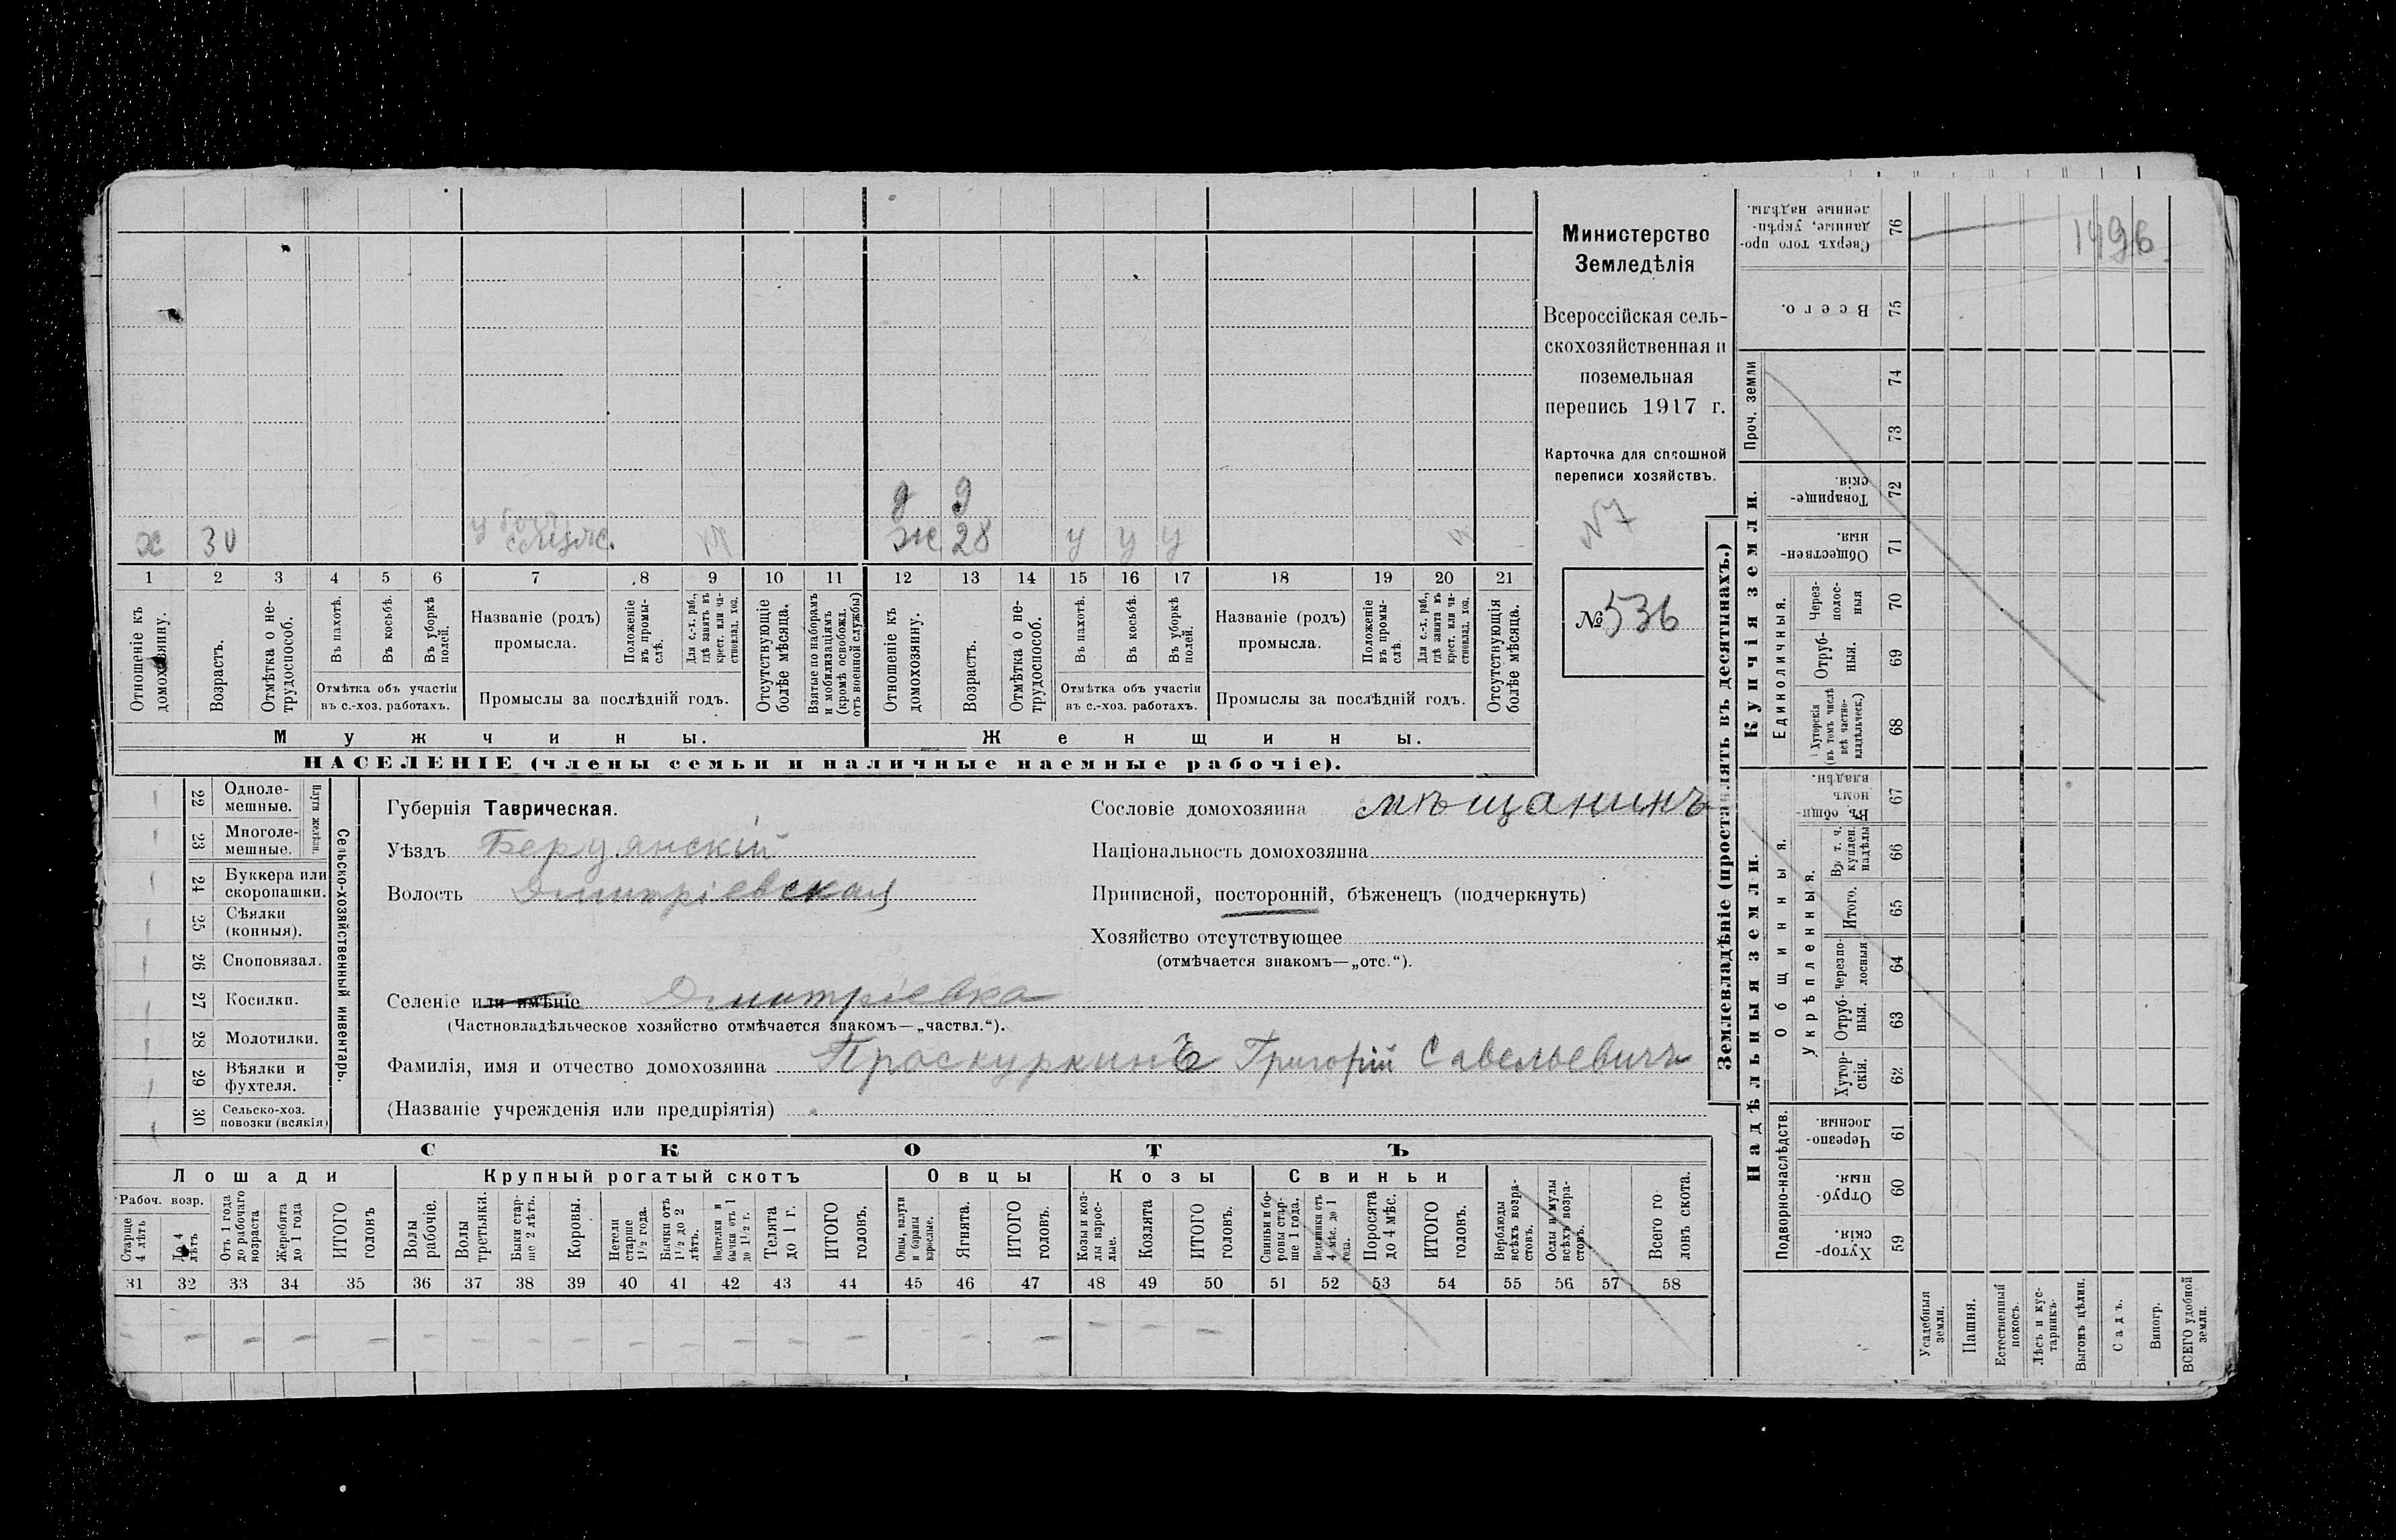 Министерство
Земледѣлія
Всероссійская сель-
скохозяйственная и
поземельная
перепись 1917 г.
Карточка для сплошной
переписи хозяйствъ.
N7
№ 536
х 30
д 9
ж 28 у у у
1 2 3 4 5 6 7 8 9 10 11 12 13 14 15 16 17 18 19 20 21
Отношеніе къ домохозяину.
Возрастъ.
Отмѣтка о не-
трудоспособ.
Въ пахотѣ.
Въ косьбѣ.
Въ уборкѣ полей.
Отмѣтка объ участіи
въ с.-хоз. работахъ.
Названіе (родъ)
промысла.
Положеніе
въ промы-
слѣ.
Для с.-х. раб.,
гдѣ занятъ въ
крест. или ча-
стновлад. хоз.
Промыслы за послѣдній годъ.
Отсутствующіе
болѣе мѣсяца.
Взятые по наборамъ
и мобилизаціямъ
(кромѣ освобожд.
отъ военной службы)
Отношеніе къ
домохозяину.
Возрастъ.
Отмѣтка о не-
трудоспособ.
Въ пахотѣ.
Въ косьбѣ.
Въ уборкѣ
полей.
Отмѣтка объ участіи
въ с.-хоз. работахъ.
Названіе (родъ)
промысла.
Положеніе
въ промы-
слѣ
Для с.-х. раб.,
гдѣ занята въ
крест. или ча-
стновлад. хоз.
Промыслы за послѣдній годъ.
Отсутствующія
болѣе мѣсяца.
Мужчины.
Женщины.
НАСЕЛЕНІЕ (члены семьи и наличные наемные рабочіе).
22 Одноле-
мешные.
23 Многоле-
мешные.
Плуги желѣзн.
24 Буккера или
скоропашки.
25 Сѣялки
(конныя).
26 Сноповязал.
27 Косилки.
28 Молотилки.
29 Вѣялки и
фухтеля.
30 Сельско-хоз.
повозки (всякія)
Сельско-хозяйственный инвентарь.
Губернія Таврическая.
Уѣздъ Бердянскій
Волость Дмитріевская
Селеніе или имѣніе Дмитріевка
(Частновладѣльческое хозяйство отмѣчается знакомъ—„частвл.“).
Фамилія, имя и отчество домохозяина Проскуркинъ Григорій Савельевичъ
(Названіе учрежденія или предпріятія)
Сословіе домохозяина мѣщанинъ
Національность домохозяина
Приписной, посторонній, бѣженецъ (подчеркнуть)
Хозяйство отсутствующее
(отмѣчается знакомъ—„отс.“).
СКОТЪ
Лошади
Рабоч. возр.
Старше
4 лѣтъ
До 4
лѣтъ
Отъ 1 года
до рабочаго
возраста
Жеребята
до 1 года
ИТОГО
головъ
Крупный рогатый скотъ
Волы
рабочіе.
Волы
третьяки.
Быки стар-
ше 2 лѣтъ.
Коровы.
Нетели
старше
1½ года.
Бычки отъ
1½ до 2
лѣтъ.
Подтелки и
бычки отъ 1
до 1½ г.
Телята
до 1 г.
ИТОГО
головъ.
Овцы
Овцы, валухи
и бараны
взрослые.
Ягнята.
ИТОГО
головъ.
Козы
Козы и коз-
лы взрос-
лые.
Козлята
ИТОГО
головъ.
Свиньи
Свиньи и бо-
ровы стар-
ше 1 года.
Подсвинки отъ
4 мѣс. до 1
года.
Поросята
до 4 мѣс.
ИТОГО
головъ.
Верблюды
всѣхъ возра-
стовъ.
Ослы и мулы
всѣхъ возра-
стовъ.
Всего го-
ловъ скота.
31 32 33 34 35 36 37 38 39 40 41 42 43 44 45 46 47 48 49 50 51 52 53 54 55 56 57 58
Землевладѣніе (проставлять въ десятинахъ.)
Купчія земли.
Надѣльныя земли.
Сверхъ того про-
данные, укрѣп-
ленные надѣлы.
76
1496
Всего.
75
Проч. земли
74
73
Товарище-
скія.
72
Обществен-
ныя.
71
Единоличныя.
Через-
полос-
ныя
70
Отруб-
ныя.
69
Хуторскія
(въ томъ числѣ
всѣ частно-
владѣльческ.)
68
Общинныя.
Въ общин-
номъ
владѣн.
67
Укрѣпленныя.
Въ т. ч.
куплен.
надѣлы
66
Итого.
65
Черезпо-
лосныя
64
Отруб-
ныя.
63
Хутор-
скія.
62
Подворно-наслѣдств.
Черезпо-
лосныя.
61
Отруб-
ныя.
60
Хутор-
скія
59
Усадебныя
земли.
Пашня.
Естественный
покосъ.
Лѣсъ и кус-
тарникъ.
Выгонъ цѣлин.
Садъ.
Виногр.
ВСЕГО удобной
земли.